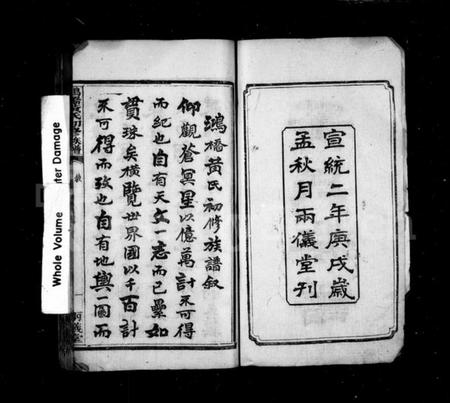 宣統二年庚戌歲
孟秋月兩儀堂刊
鴻橋黃氏初修族譜叙
仰觀蒼冥星以億萬計不可得
而紀也自有天文一志而已纍如
貫珠矣橫覽世界國以千百計
不可得而攷也自有地輿一圖而
Whole Volume
ter Damage